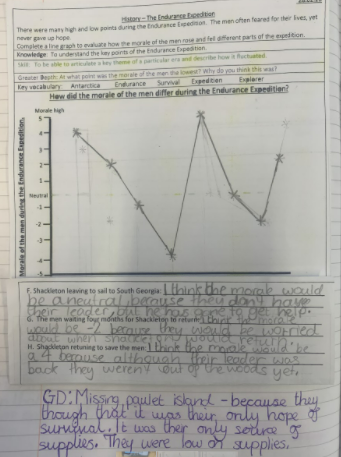 History – The Endurance Expedition
There were many high and low points during the Endurance Expedition. The men often feared for their lives, yet
never gave up hope.
Complete a line graph to evaluate how the morale of the men rose and fell different parts of the expedition.
Knowledge: To understand the key points of the Endurance Expedition.
Skill: To be able to articulate a key theme of a particular era and describe how it fluctuated.
Greater Depth: At what point was the morale of the men the lowest? Why do you think this was?
Key vocabulary: Antarctica Endurance Survival Expedition Explorer
How did the morale of the men differ during the Endurance Expedition?
Morale high
Morale of the men during the Endurance Expedition.
5
4
3
2
1
Neutral
-1
-2
-3
-4
-5
F. Shackleton leaving to sail to South Georgia: I think the morale would
be a neutral because they don't have
their leader, but he has gone to get help.
G. The men waiting four months for Shackleton to return: I think the morale
would be -2 because they would be worried
about when shackleton would return.
H. Shackleton returning to save the men: I think the morale would be
a 4 because although their leader was
back they weren't out of the woods yet.
GD: Missing paulet island - because they
though that it was their only hope of
survival. It was ther only source of
supplies. They were low on supplies.